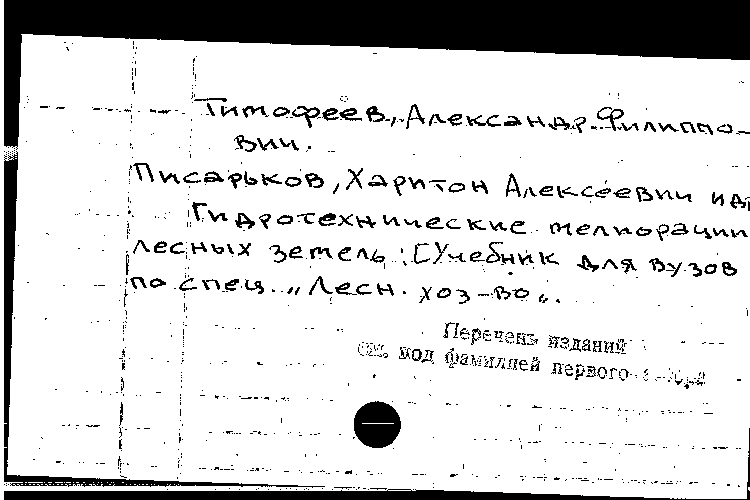 Тимофеев, Александр Филиппо-
вич.
Писарьков, Харитон Алексеевич и др
Гидротехнические мелиорации
лесных земель: [Учебник для вузов
по спец. „Лесн. хоз-во".
Перечень изданий
см. под фамилией первого